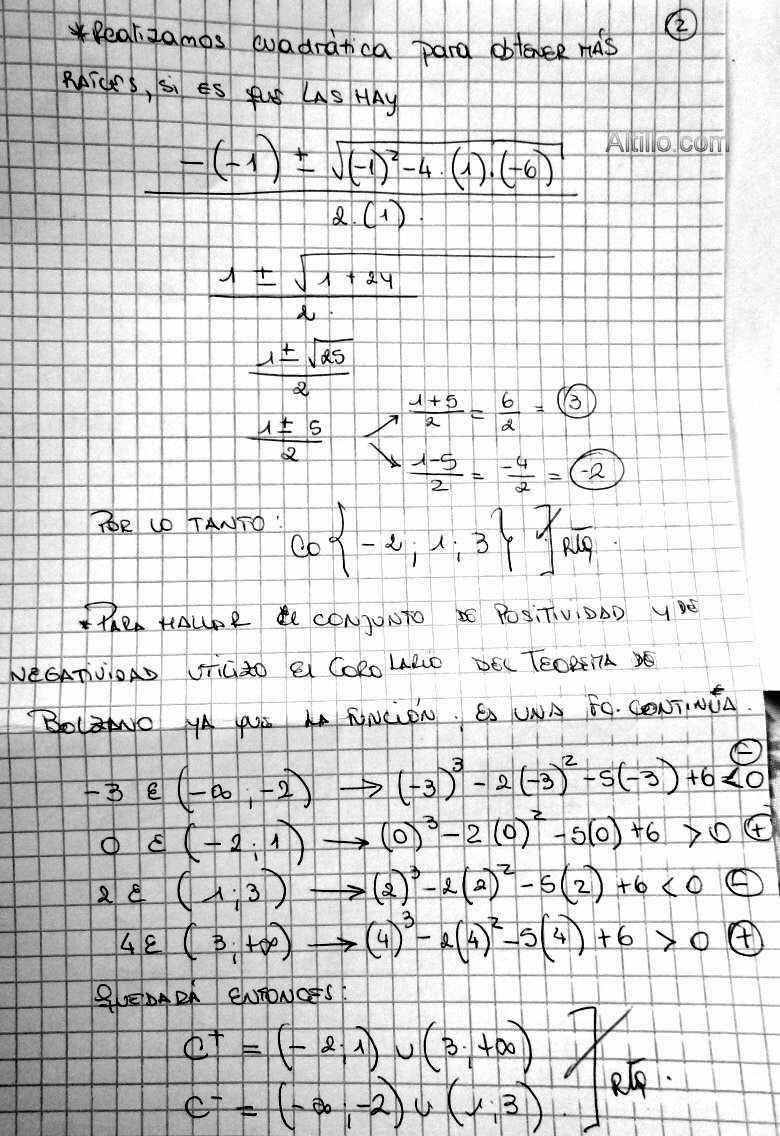 ②
*Realizamos cuadrática para obtener MÁS
RAÍCES, si ES que LAS HAY
Altillo.com
-(-1) ± √(-1)² - 4.(1).(-6)
2.(1).
1 ± √1 + 24
2.
1 ± √25
2
1 ± 5
2
1+5/2 = 6/2 = 3
1-5/2 = -4/2 = -2
POR LO TANTO: C0 {-2; 1; 3} Rta.
*PARA HALLAR El CONJUNTO DE POSITIVIDAD Y DE
NEGATIVIDAD UTILIZO El COROLARIO DEL TEOREMA DE
BOLZANO YA QUE LA FUNCIÓN, ES UNA FC. CONTINUA.
-3 ∈ (-∞; -2) → (-3)³ - 2(-3)² - 5(-3) + 6 < 0 ⊖
0 ∈ (-2; 1) → (0)³ - 2(0)² - 5(0) + 6 > 0 ⊕
2 ∈ (1; 3) → (2)³ - 2(2)² - 5(2) + 6 < 0 ⊖
4 ∈ (3; +∞) → (4)³ - 2(4)² - 5(4) + 6 > 0 ⊕
QUEDARÁ ENTONCES:
C⁺ = (-2; 1) ∪ (3; +∞)
C⁻ = (-∞; -2) ∪ (1; 3). Rta.